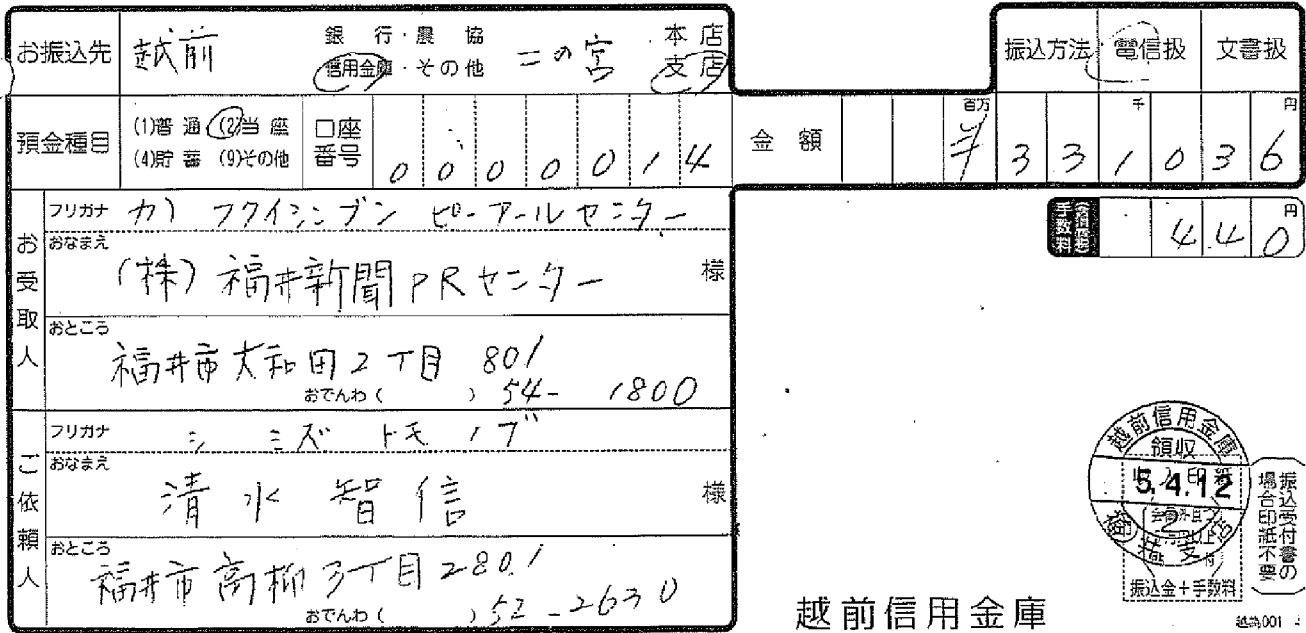 お振込先 越前 銀行・農協 信用金庫・その他 二の宮 本店 支店
振込方法 電信扱 文書扱
預金種目 (1)普通 (2)当座 (4)貯蓄 (9)その他 口座番号 0000014
金額 百万 千 円 ¥331036
手数料 円 440
お受取人
フリガナ カ)フクイシンブン ピーアールセンター
おなまえ (株)福井新聞PRセンター 様
おところ 福井市大和田2丁目 801
おでんわ( ) 54-1800
ご依頼人
フリガナ シミズ トモノブ
おなまえ 清水智信 様
おところ 福井市高柳3丁目2801
おでんわ( ) 52-2630
越前信用金庫
領収
5.4.12
振込金+手数料
振込受付書の場合印紙不要
越前信用金庫